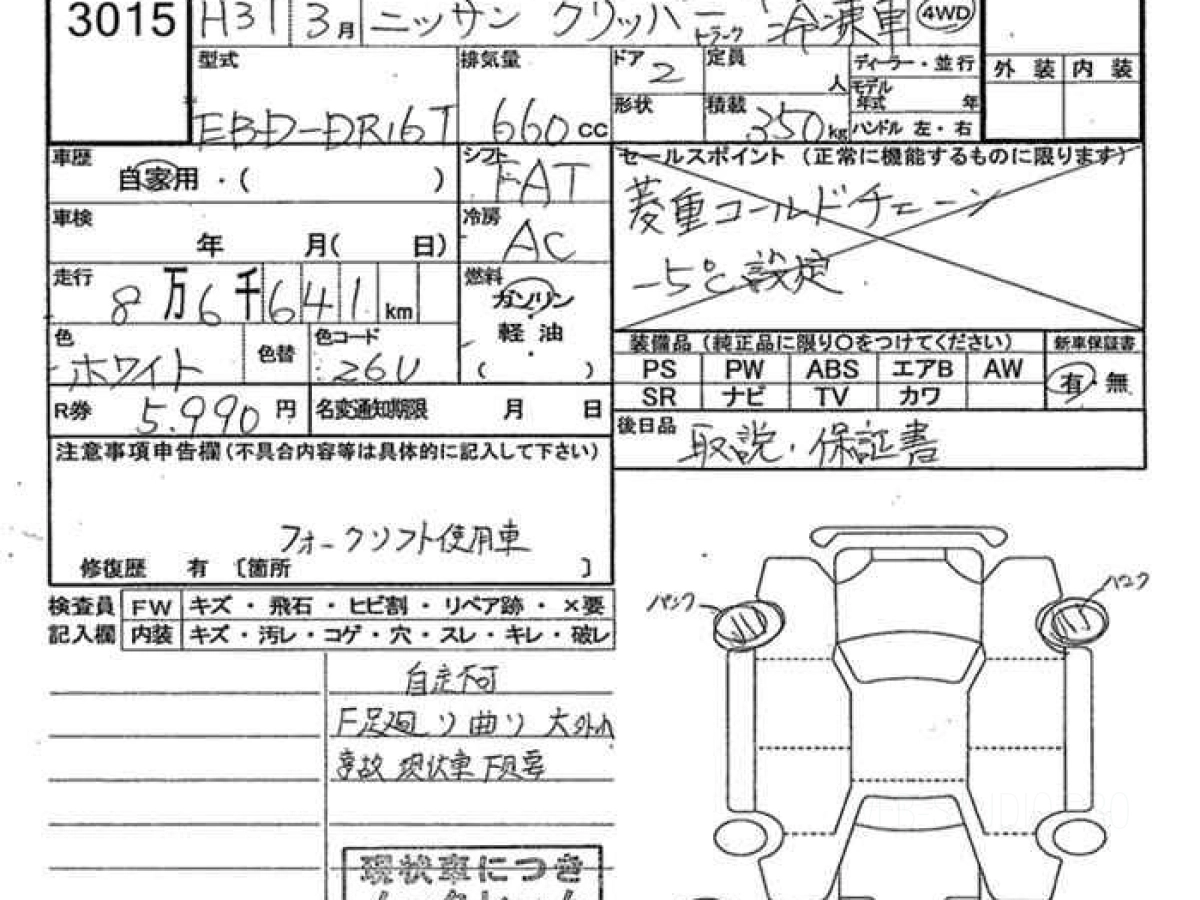 3015 H31 3月 ニッサン クリッパートラック 冷凍車 4WD
型式 排気量 ドア 2 定員 人 ディーラー・並行 外装 内装
モデル年式 年
EBD-DR16T 660cc 形状 積載 350kg ハンドル 左・右
車歴 自家用・( ) シフト FAT セールスポイント (正常に機能するものに限ります)
菱重コールドチェーン
車検 年 月( 日) 冷房 AC
-5℃設定
走行 8万6千641km 燃料 ガソリン
軽油
( )
色 ホワイト 色替 色コード 26U
装備品(純正品に限り○をつけてください) 新車保証書
PS PW ABS エアB AW 有・無
SR ナビ TV カワ
R券 5.990円 名変通知期限 月 日
後日品 取説・保証書
注意事項申告欄(不具合内容等は具体的に記入して下さい)
フォークリフト使用車
修復歴 有 〔箇所 〕
検査員 FW キズ・飛石・ヒビ割・リペア跡・×要
記入欄 内装 キズ・汚レ・コゲ・穴・スレ・キレ・破レ
パンク パンク
自走不可
F足廻り曲り 大外れ
事故現状車 下見要
現状車につき